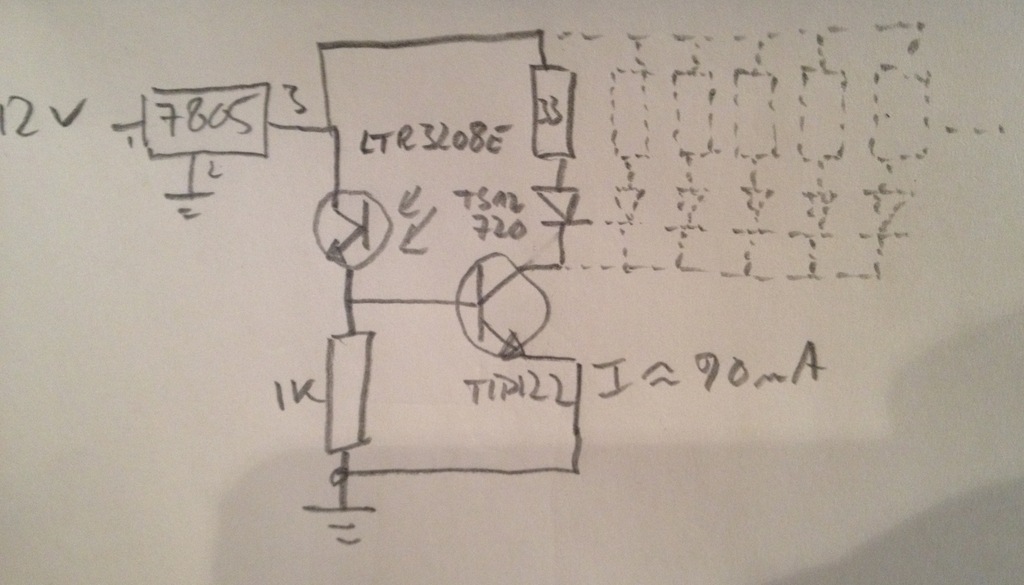 12 V
7805
1
2
3
LTR3208E
33
TSAL
720
1K
TIP122
I ≈ 90mA